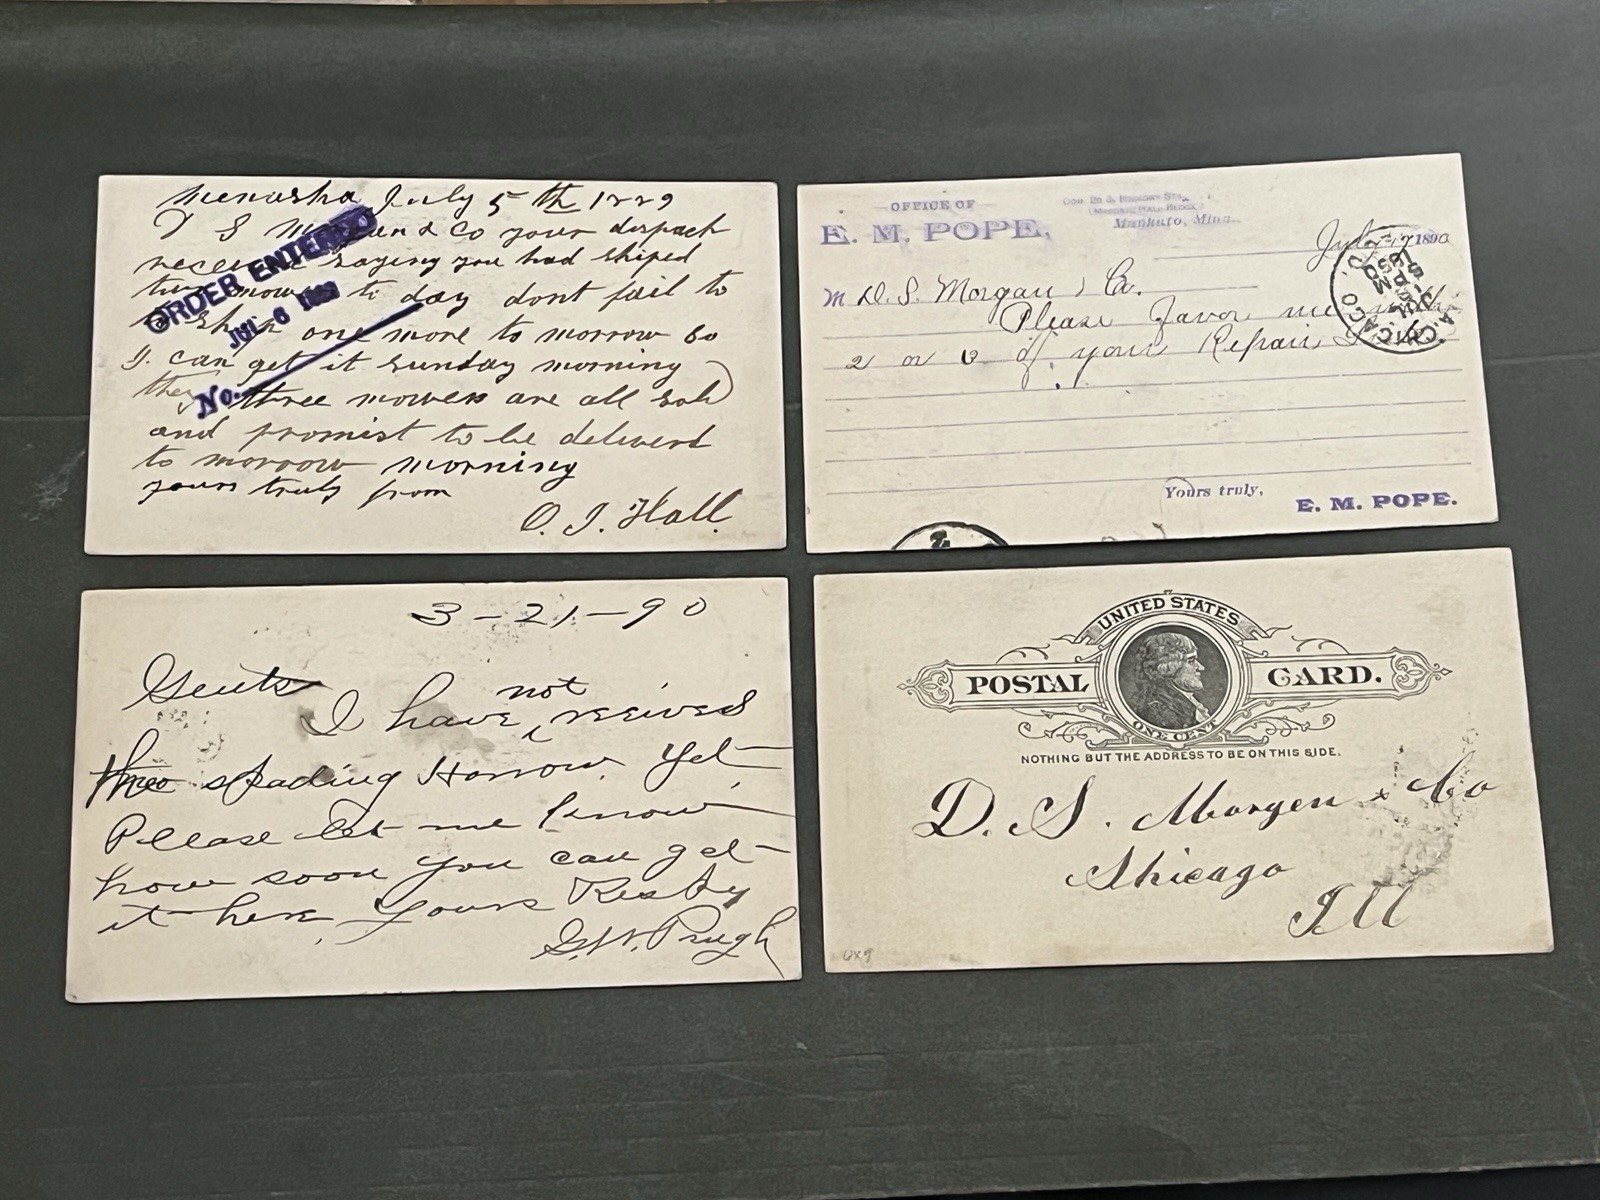 Menasha July 5th 1889
D S Morgan & Co your dispach
received saying you had shiped
two mowers to day dont fail to
to ship one more to morrow so
I can get it sunday morning
they three mowers are all sold
and promist to be deliverd
to morrow morning
yours truly from
O. J. Hall
ORDER ENTERED
JUL 6 1889
No.
OFFICE OF
E. M. POPE,
Cor. & Hickory Sts.,
Mankato, Minn.
July 17 1890
M D. S. Morgan & Co.
Please Favor me with
2 or 3 of your Repair
CHICAGO
Yours truly,
E. M. POPE.
3-21-90
Gents
I have not reeived
three spading Harrow. Yet
Please let me know
how soon you can get
it here, Yours Resty
G. W. Prugh
UNITED STATES
POSTAL CARD.
ONE CENT
NOTHING BUT THE ADDRESS TO BE ON THIS SIDE.
D. S. Morgen & Co
Chicago
Ill
UX9